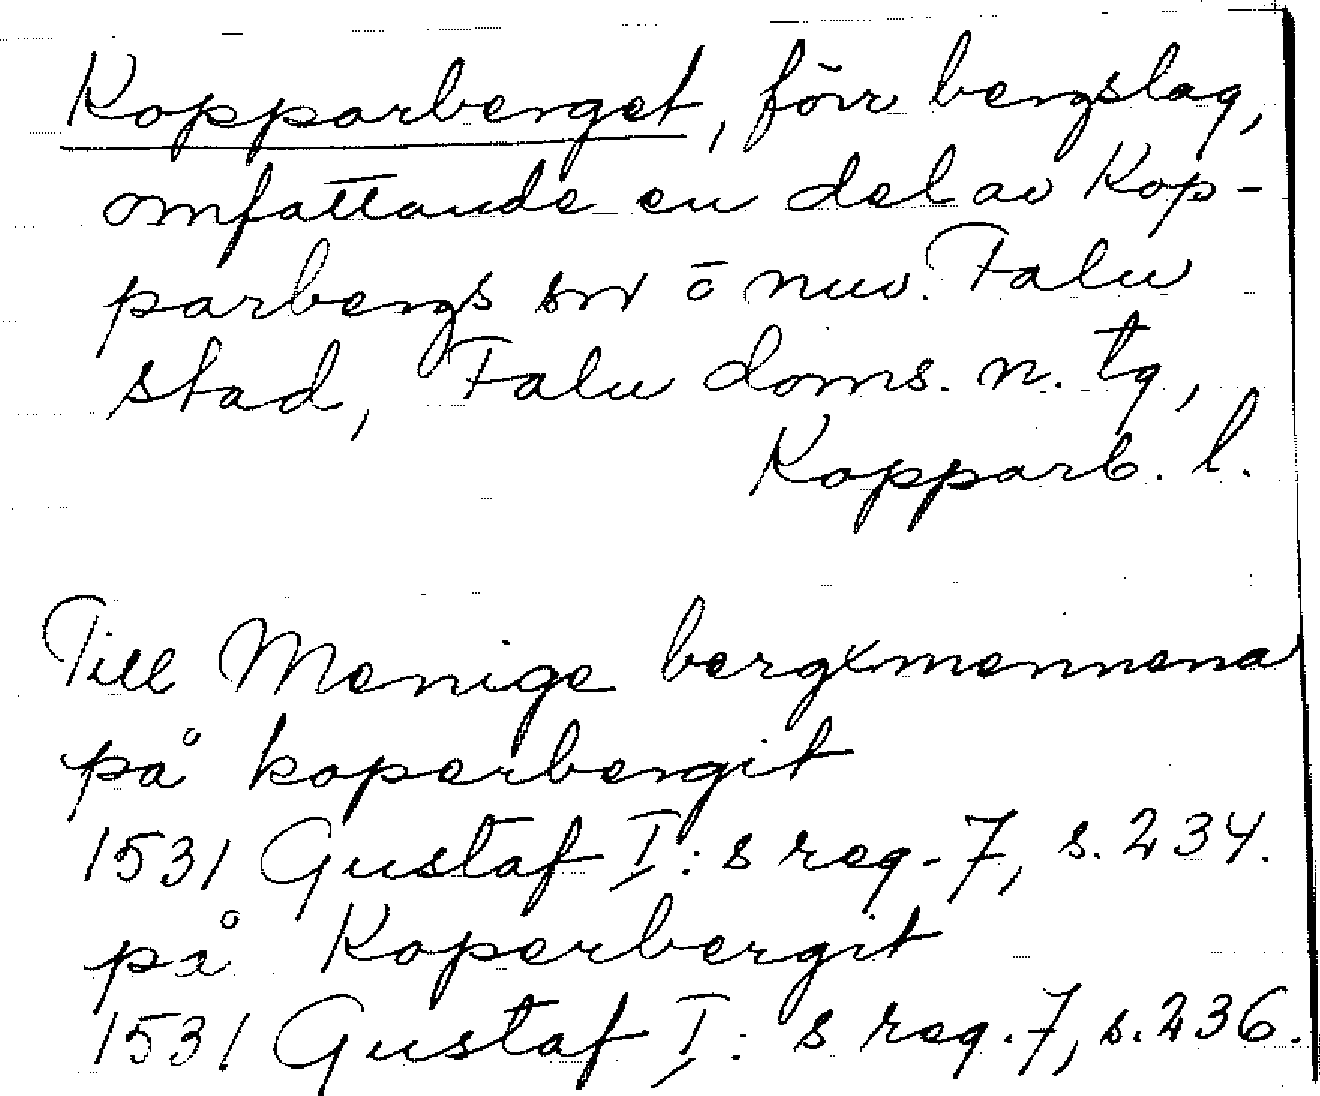 Kopparberget, förr bergslag,
omfattande en del av Kop-
parbergs sn o nuv. Falu
stad, Falu doms. n. tg,
Kopparb. l.
Till Menige bergxmennena
på koperbergit
1531 Gustaf I:s reg. 7, s. 234.
på Koperbergit
1531 Gustaf I:s reg. 7, s. 236.